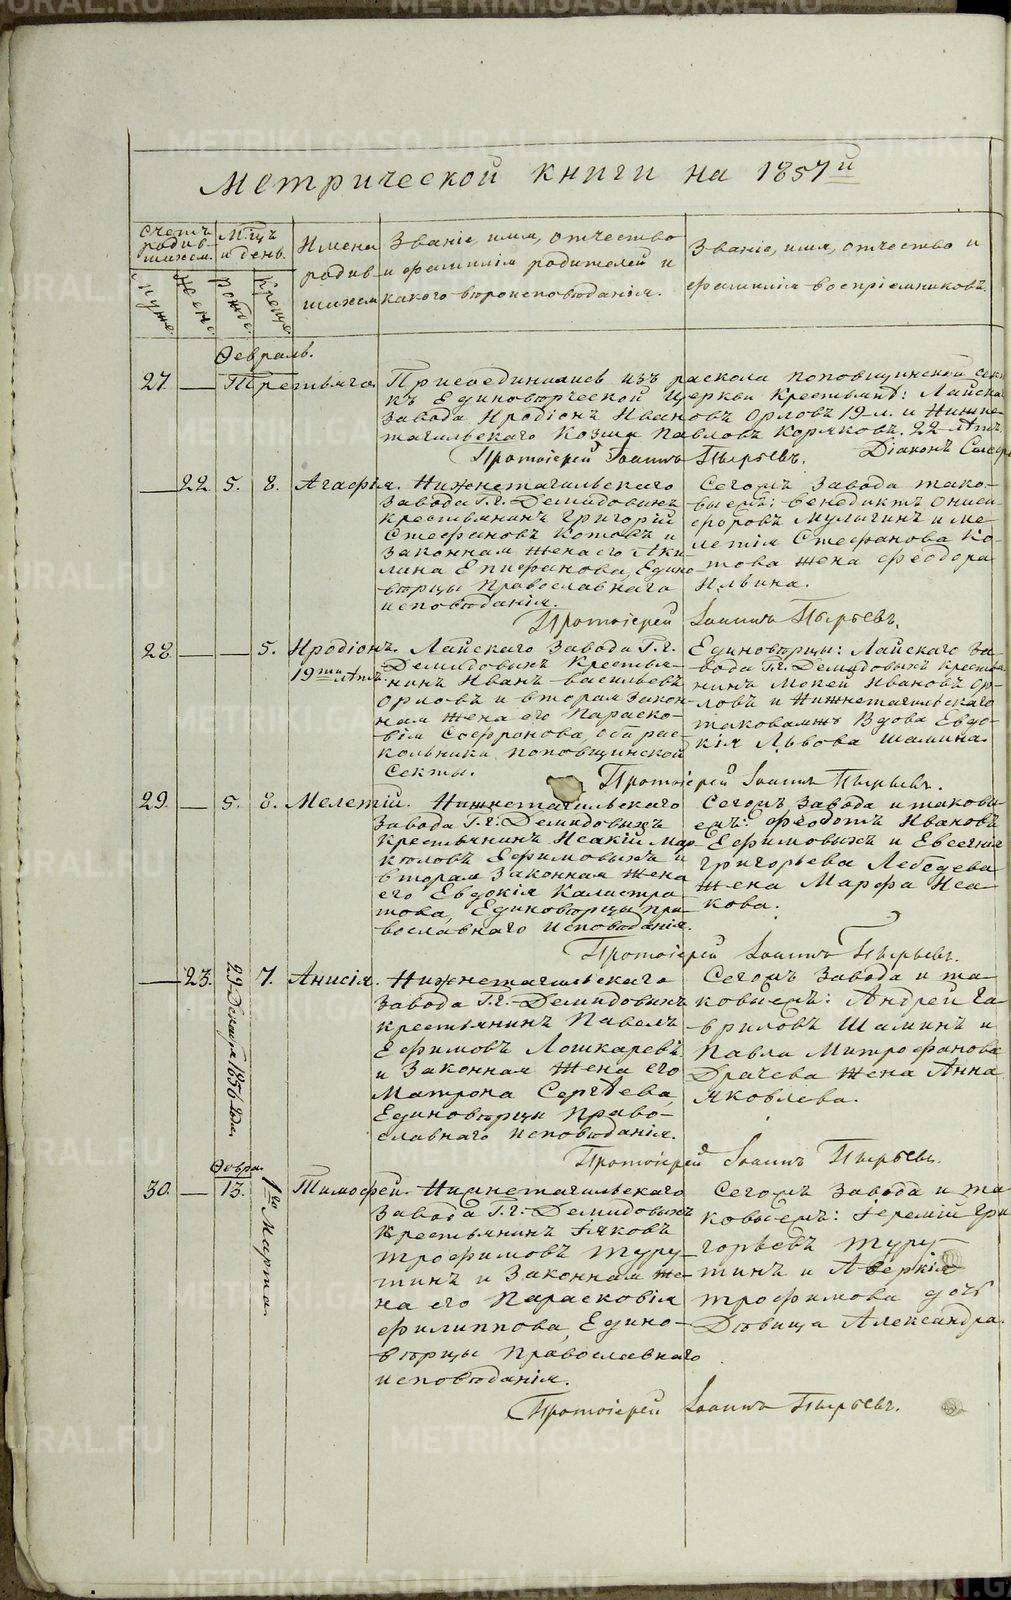 Метрической книги на 1857й
Счетъ родив-шихся.
Мѣцъ и день.
Имена родив-шихся
Званіе, имя, отчество и фамилія родителей и какого вѣроисповѣданія.
Званіе, имя, отчество и фамилія воспріемниковъ.
Муж.
Женс.
Рожде.
Креще.
Февраль.
27. — Третьяго. Присоединились изъ раскола поповщинской сек
къ Единоверческой Церкви Крестьяне: Лайска
завода Иродіонъ Ивановъ Орловъ 19 л. и Нижне-
тагильскаго Козма Павловъ Коряковъ. 22 лѣтъ.
Протоіерей Іоаннъ Пырьевъ. Діаконъ
— 22. 5. 8. Агафія. Нижнетагильскаго
завода Г.г. Демидовыхъ
крестьянинъ Григорій
Стефановъ Котовъ и
законная жена его Аки-
лина Епифанова, Едино
вѣрцы Православнаго
исповѣданія.
Сегожъ завода тако-
выежъ: Венедиктъ Ониси-
форовъ Мулыгинъ и Ме-
летія Стефанова Ко-
това жена Феодора
Ильина.
Протоіерей Іоаннъ Пырьевъ.
28. — — 5. Иродіонъ.
19ти лѣтъ.
Лайскаго завода Г.г.
Демидовыхъ Крестья-
нинъ Иванъ Васильевъ
Орловъ и вторая закон-
ная жена его Параско-
вія Софронова, оба рас-
кольники поповщинской
секты.
Единовѣрцы: Лайскаго за-
вода Г.г. Демидовыхъ крестья
нинъ Мокей Ивановъ Ор-
ловъ и Нижнетагильскаго
таковаяжъ Вдова Евдо-
кія Львова Шамина.
Протоіерей Іоаннъ Пырьевъ.
29. — 5. 8. Мелетій. Нижнетагильскаго
завода Г.г. Демидовыхъ
крестьянинъ Исакій Мар
кѣловъ Ефимовыхъ и
вторая законная жена
его Евдокія Калистра
това, Единовѣрцы Пра-
вославнаго исповѣданія.
Сегожъ завода и таковы
ежъ: Федотъ Ивановъ
Ефимовыхъ и Евсегнія
Григорьева Лебедева
жена Марфа Иса-
кова.
Протоіерей Іоаннъ Пырьевъ.
— 23. 29 Декабря 1856 года. 7. Анисія. Нижнетагильскаго
завода Г.г. Демидовыхъ
крестьянинъ Павелъ
Ефимовъ Лошкаревъ
и законная жена его
Матрона Сергѣева
Единовѣрцы Право-
славнаго исповѣданія.
Сегожъ завода и та-
ковыежъ: Андрей Га-
вриловъ Шаминъ и
Павла Митрофанова
Драчева жена Анна
Яковлева.
Протоіерей Іоаннъ Пырьевъ.
Февра.
30. — 13. 1го Марта. Тимофей. Нижнетагильскаго
завода Г.г. Демидовыхъ
крестьянинъ Іяковъ
Трофимовъ Туру-
тинъ и законная же-
на его Парасковія
Филиппова, Едино-
вѣрцы Православнаго
исповѣданія.
Сегожъ завода и та
ковыежъ: Іеремій Гри
горьевъ Туру-
тинъ и Аверкія
Трофимова дочь
Дѣвица Александра.
Протоіерей Іоаннъ Пырьевъ.
METRIKI.GASO-URAL.RU